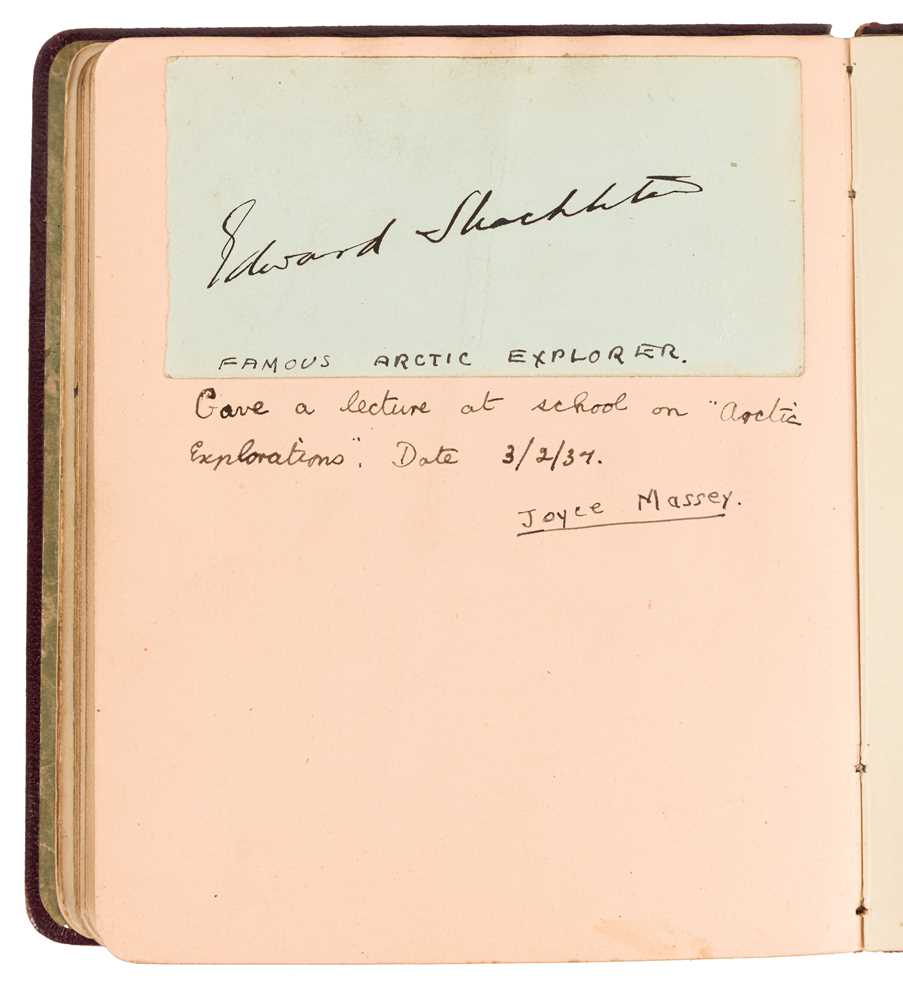 Edward Shackleton
FAMOUS ARCTIC EXPLORER.
Gave a lecture at school on "Arctic
Explorations". Date 3/2/37.
Joyce Massey.